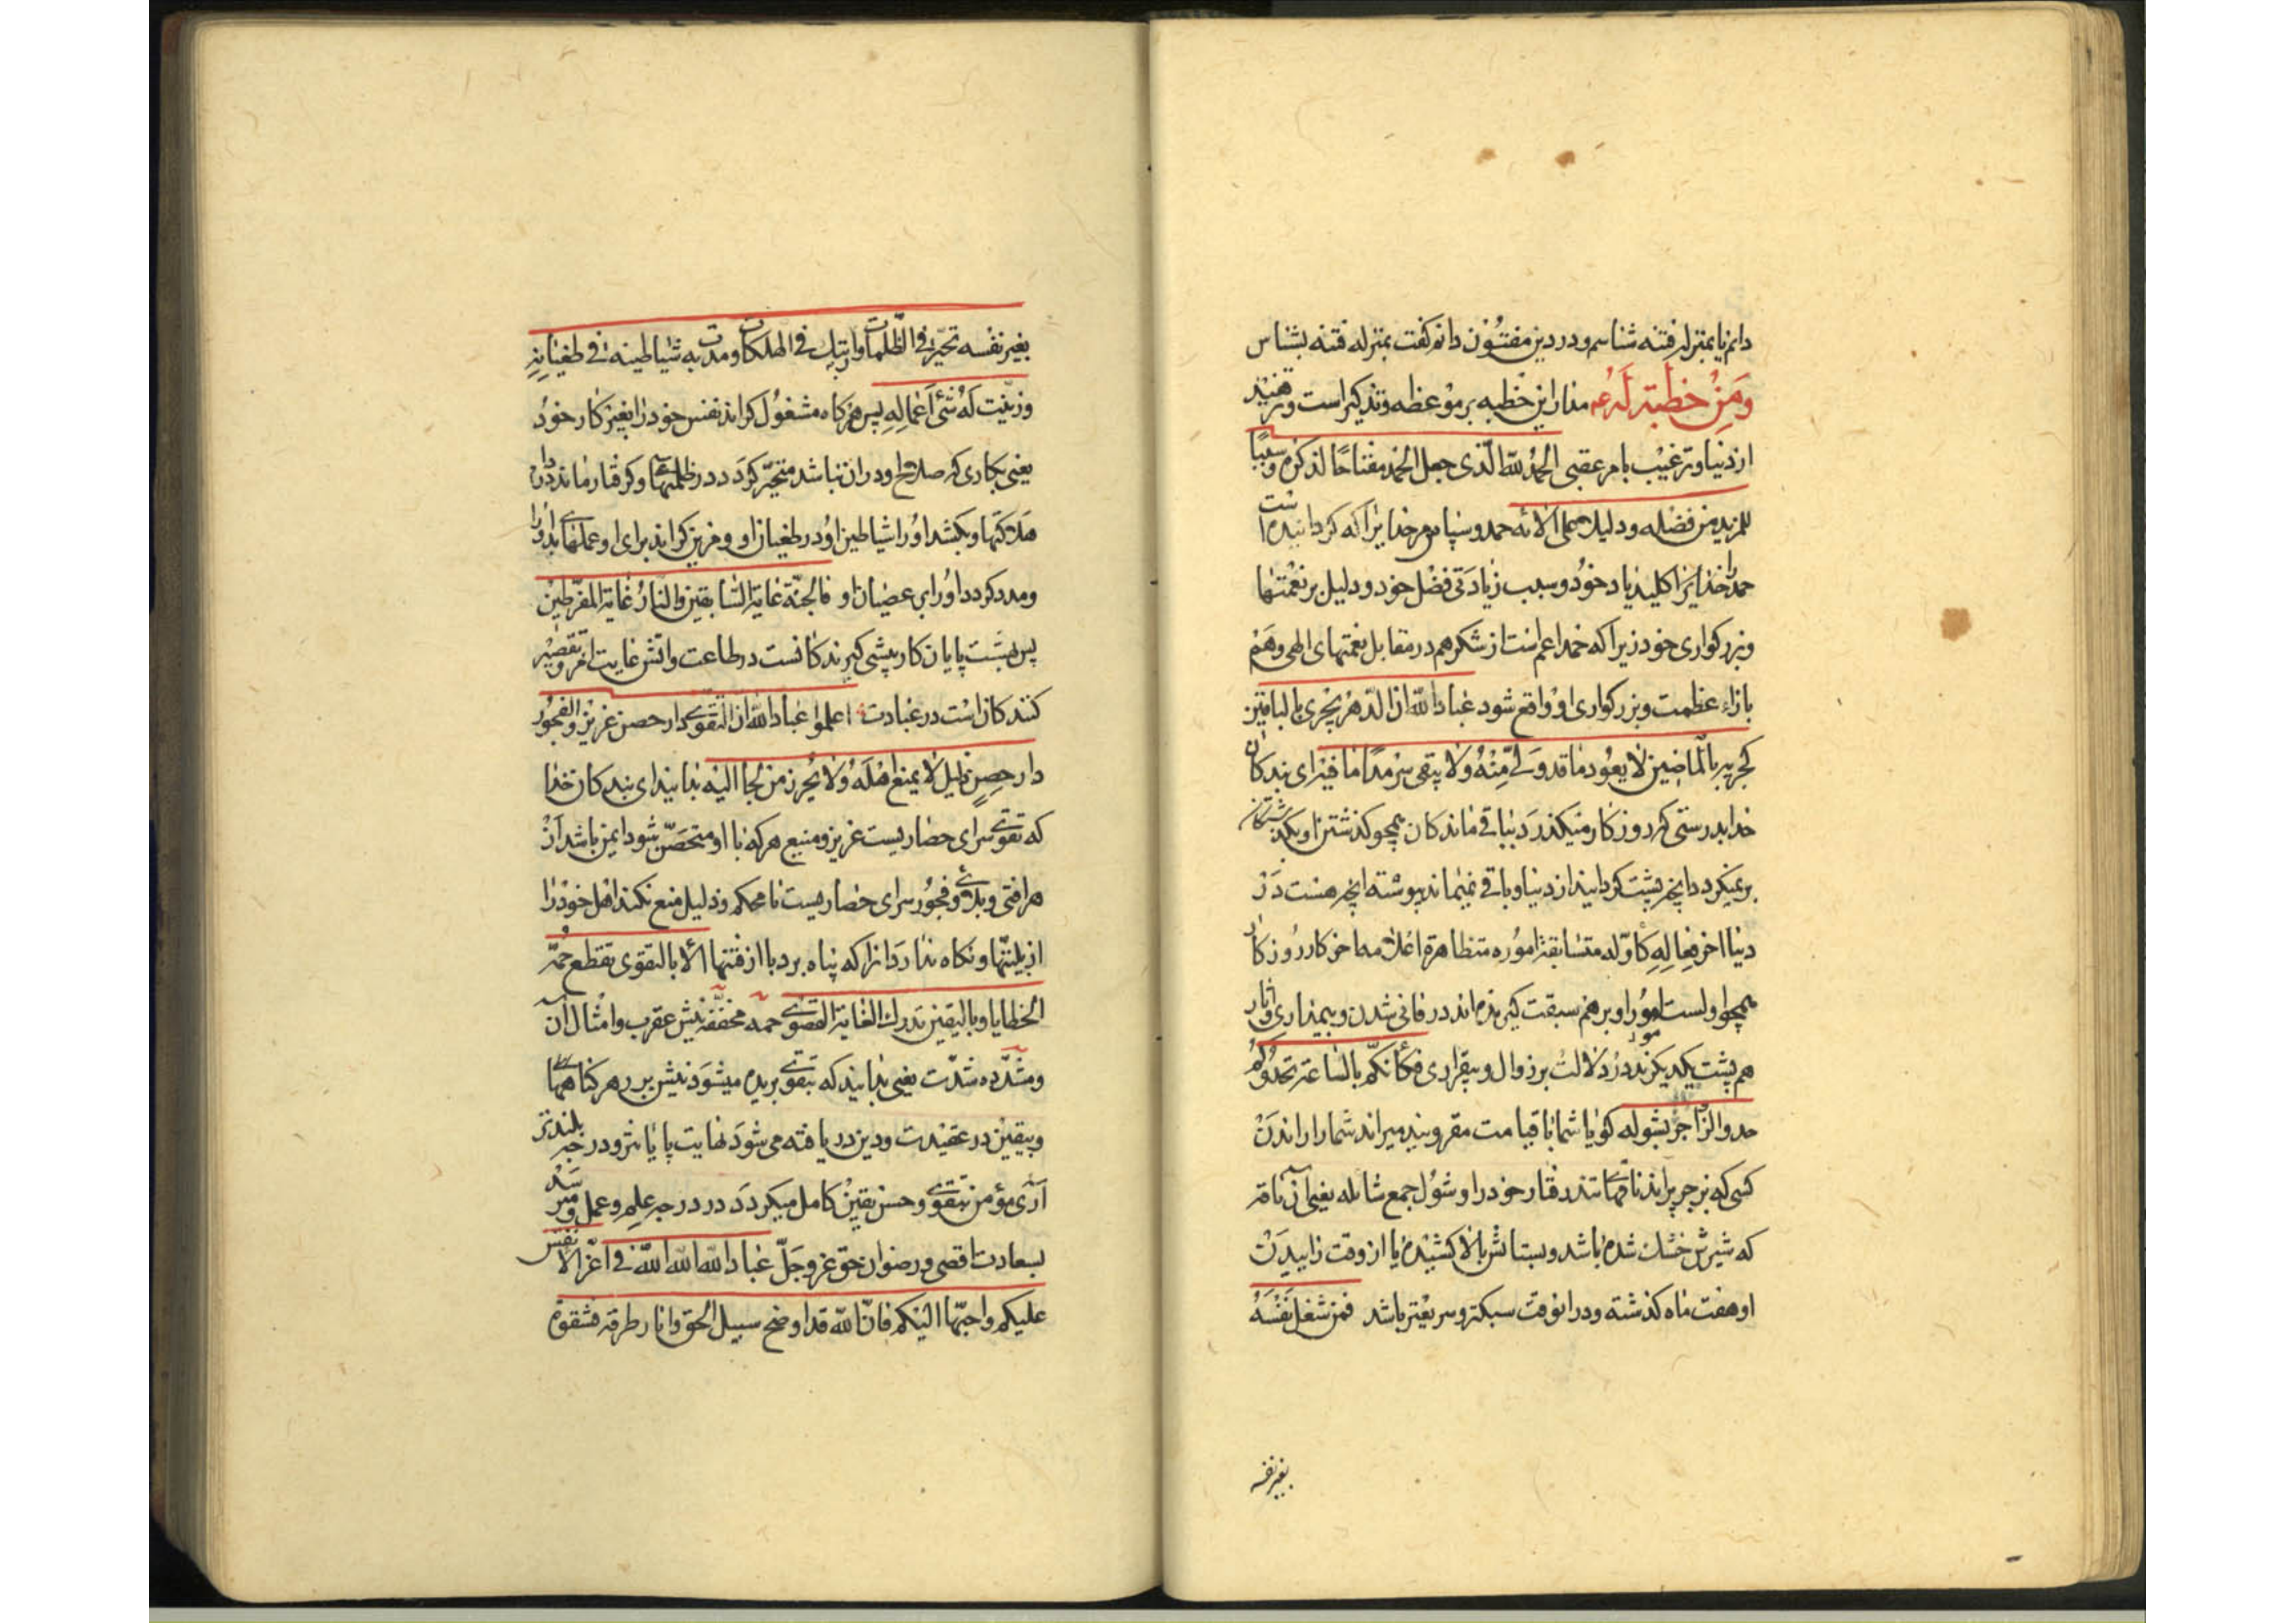 دانم یا بمنزله فتنه شناسم و در دین مفتون دانم کفت بمنزله فتنه بشناس
وَمِنْ خطبة لَهُ عم مدار این خطبه بر موعظه و تذکیر است و تزهید
از دنیا و ترغیب بامر عقبی الحمدُ للّه الّذی جعل الحمد مفتاحًا لذکره و سببًا
للمزید من فضله و دلیلا علی آلائه حمد و سپاس مر خدایرا که کردانیده است
حمد را خدایرا کلید یاد خود و سبب زیادتی فضل خود و دلیل بر نعمتها
و بزرکواری خود زیرا که حمد اعم است از شکر هم در مقابل نعمتهای الهی و هم
بازاء عظمت و بزرکواری او واقع شود عباد اللّه ان الدّهر یجری بالباقین
کجریه بالماضین لا یعود ما قد ولّی مِنْهُ ولا یبقی سرمدًا ما فیه ای بندکان
خدا بدرستی که روزکار میکذرد بباقی ماندکان همچو کذشتن او بکذشتکان
بر نمیکردد آنچه پشت کردانید از دنیا و باقی نمیماند پیوسته آنچه هست در
دنیا اخر فعاله کاوّله متسابقة اموره متظاهرة اعلامه اخر کار روزکار
همچو اولست امور او بر هم سبقت کیرنده اند در فانی شدن و بیمداری و آثار
هم پشت یکدیکرند در دلالت بر زوال و بیقراری فکانکم بالساعة تحدوکم
حدو الزاجر بشوله کویا شما با قیامت مقرونید میراند شما را راندن
کسی که بزجر براند ناقهائی تند رفتار خود را و شول جمع شائله یعنی آن ناقه
که شیرش خشک شده باشد و پستانش بالا کشیده یا از وقت زاییدن
او هفت ماه کذشته و در انوقت سبکتر و سریعتر باشد فمن شغل نَفْسَهُ
بغیر نفسه
بغیر نفسه تحیّر فی الظّلمات وارتبک فی الهلکات ومدت به شیاطینه فی طغیانه
وزینت لَهُ سیّئ اعماله پس هر کاه مشغول کراند نفس خود را بغیر کار خود
یعنی بکاری که صلاح او در ان نباشد متحیّر کردد در ظلمتهای و کرفتار ماند در ان
هلاکتها و بکشد او را شیاطین او در طغیان او و مزین کراند برای او عملهای بد او را
و مدد کردد او را بر عصیان او فالجنّة غایة السّابقین والنارُ غایة المفرّطین
پس بهشت پایان کار پیشی کیرندکانست در طاعت و اتش غایت امر تقصیر
کنندکان است در عبادت اعلموا عباد اللّه ان التقوی دار حصن عزیز والفجور
دار حصن ذلیل لا یمنع اهْلَهُ ولا یُحرز من لجأ الیه بدانید ای بندکان خدا
که تقوی سرای حصاریست عزیز و منیع هر که با او متحصّن شود ایمن باشد از
هر افتی و بلائی و فجور سرای حصاریست نا محکم و ذلیل منع نکند اهل خود را
از بلیّتها و نکاه ندارد انرا که پناه برد با از فتنها الا بالتقوی تقطع حُمة
الخطایا وبالیقین تدرک الغایة القصوی حمه مخفّفه نیش عقرب و امثال آن
و مشدّده شدّت یعنی بدانید که بتقوی بریده میشود نیش پر زهر کناههائی
و بیقین در عقیدت و دین در یافته می شود نهایت پایانتر و درجه بلندتر
آری مؤمن بتقوی و حسن یقین کامل میکردد در درجه علم و عمل و میرسد
بسعادت اقصی و رضوان حق عزّ وجَلّ عباد اللّه اللّه اللّه فی اعزّ الانفس
علیکم واحبّها الیکم فانّ اللّه قد اوضح سبیل الحق وانار طرقه فشقوة